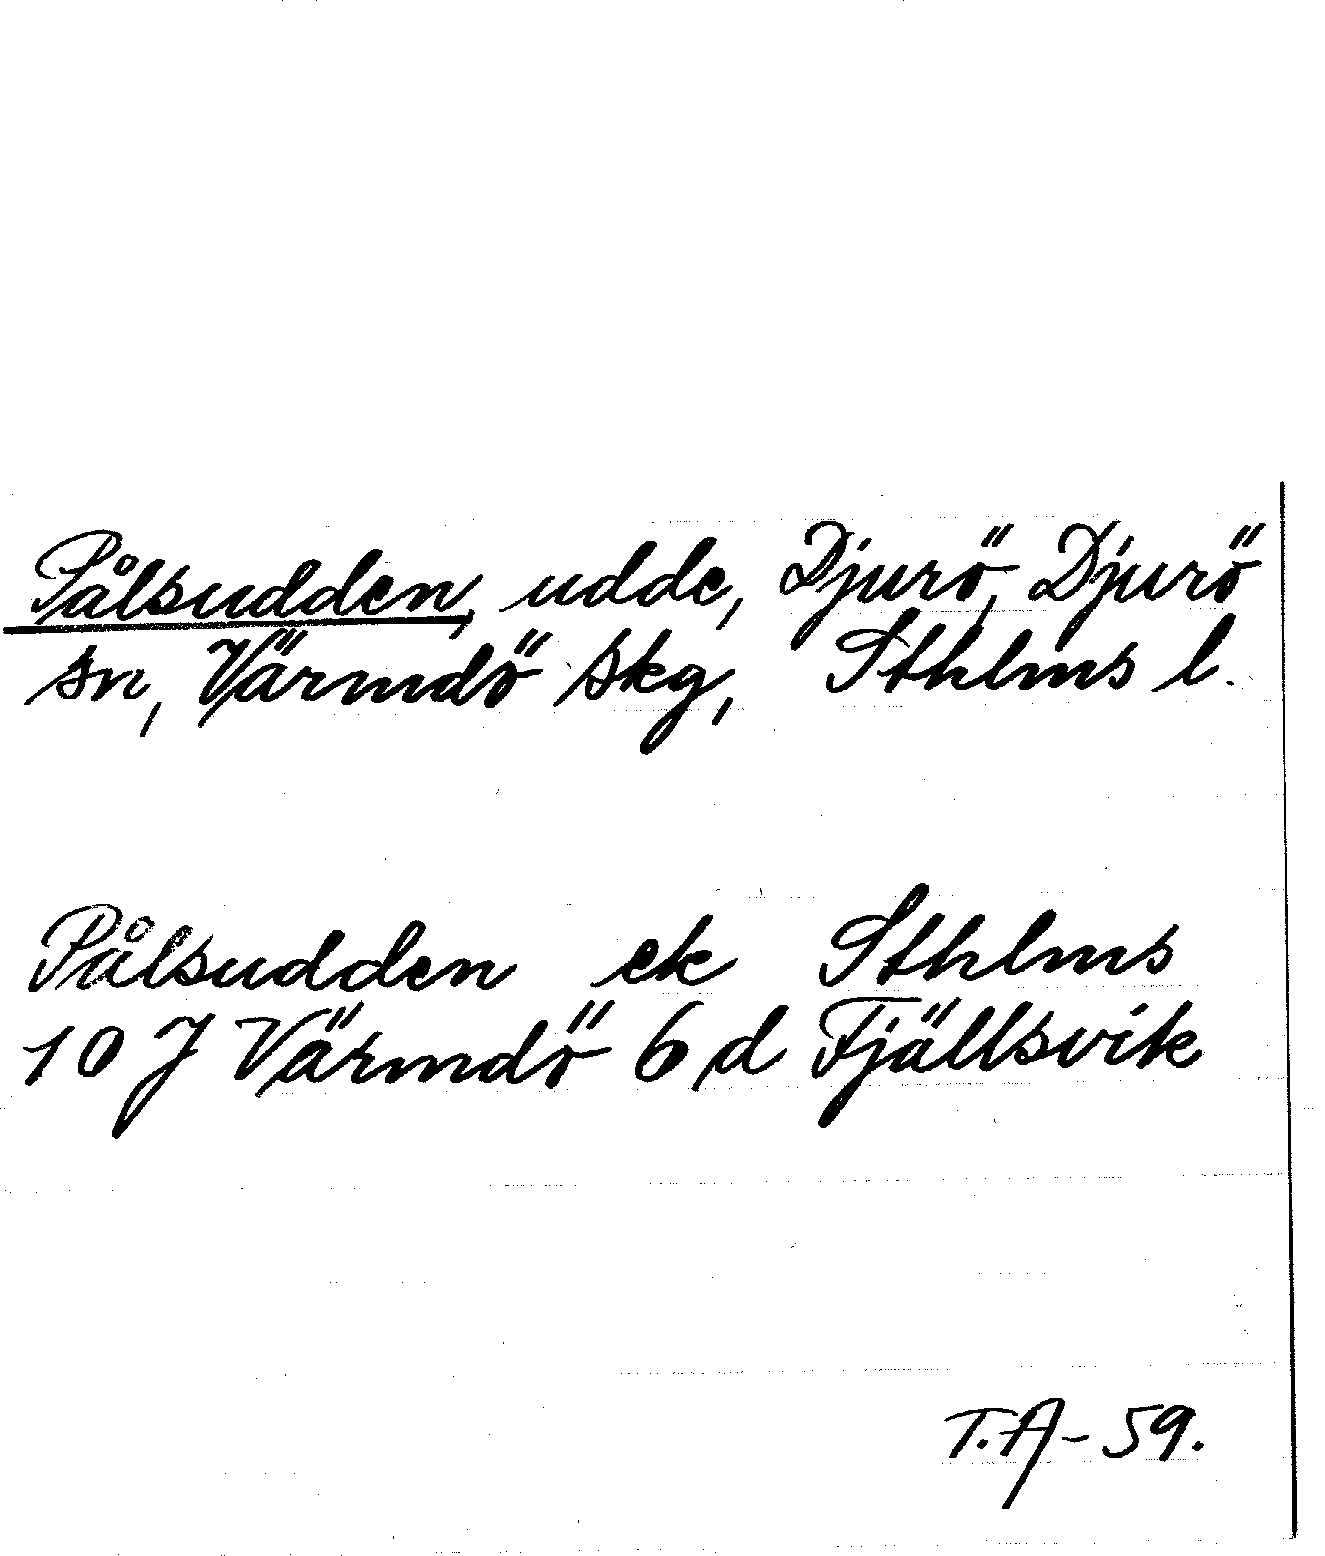 Pålsudden, udde, Djurö, Djurö
sn, Värmdö skg, Sthlms l.
Pålsudden ek Sthlms
10 J Värmdö 6 d Fjällsvik
T.A-59.